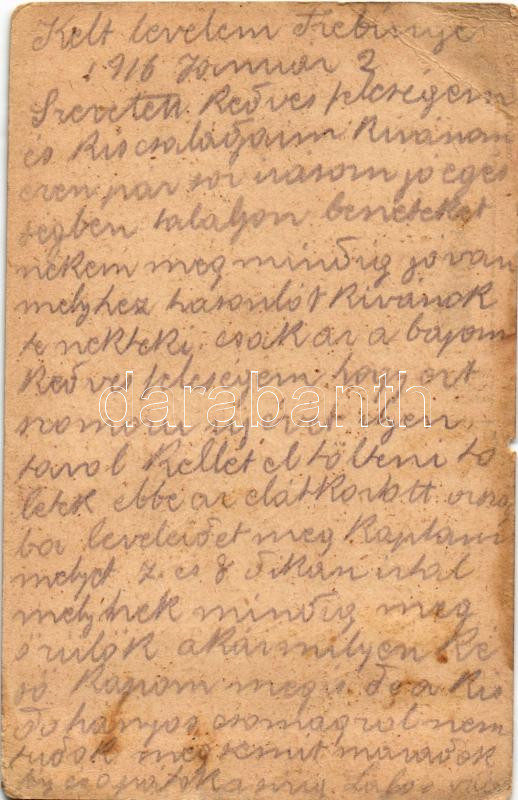 Kelt levelem Trebinye
1916 Januar 2
Szeretett Kedves feleségem
és Kis csaladjaim Kivánom
ezen par sor irasom jo egés
ségben talaljon beneteket
nekem meg mindig jo van
melyhez hasonlót Kivánok
te nektek is csak az a bajom
Kedves feleségem hogy ezt
szomoru uj evet ilyen
tavol Kellet el tölteni to
letek ebbe az elátkozott orszag
ba leveleidet meg Kaptam
melyet 7 es 8 dikan
melynek mindig meg
örülök akarmilyen Ké
so Kapom meg is de a Kis
dohanyos csomagrol nem
tudok meg semit maradok